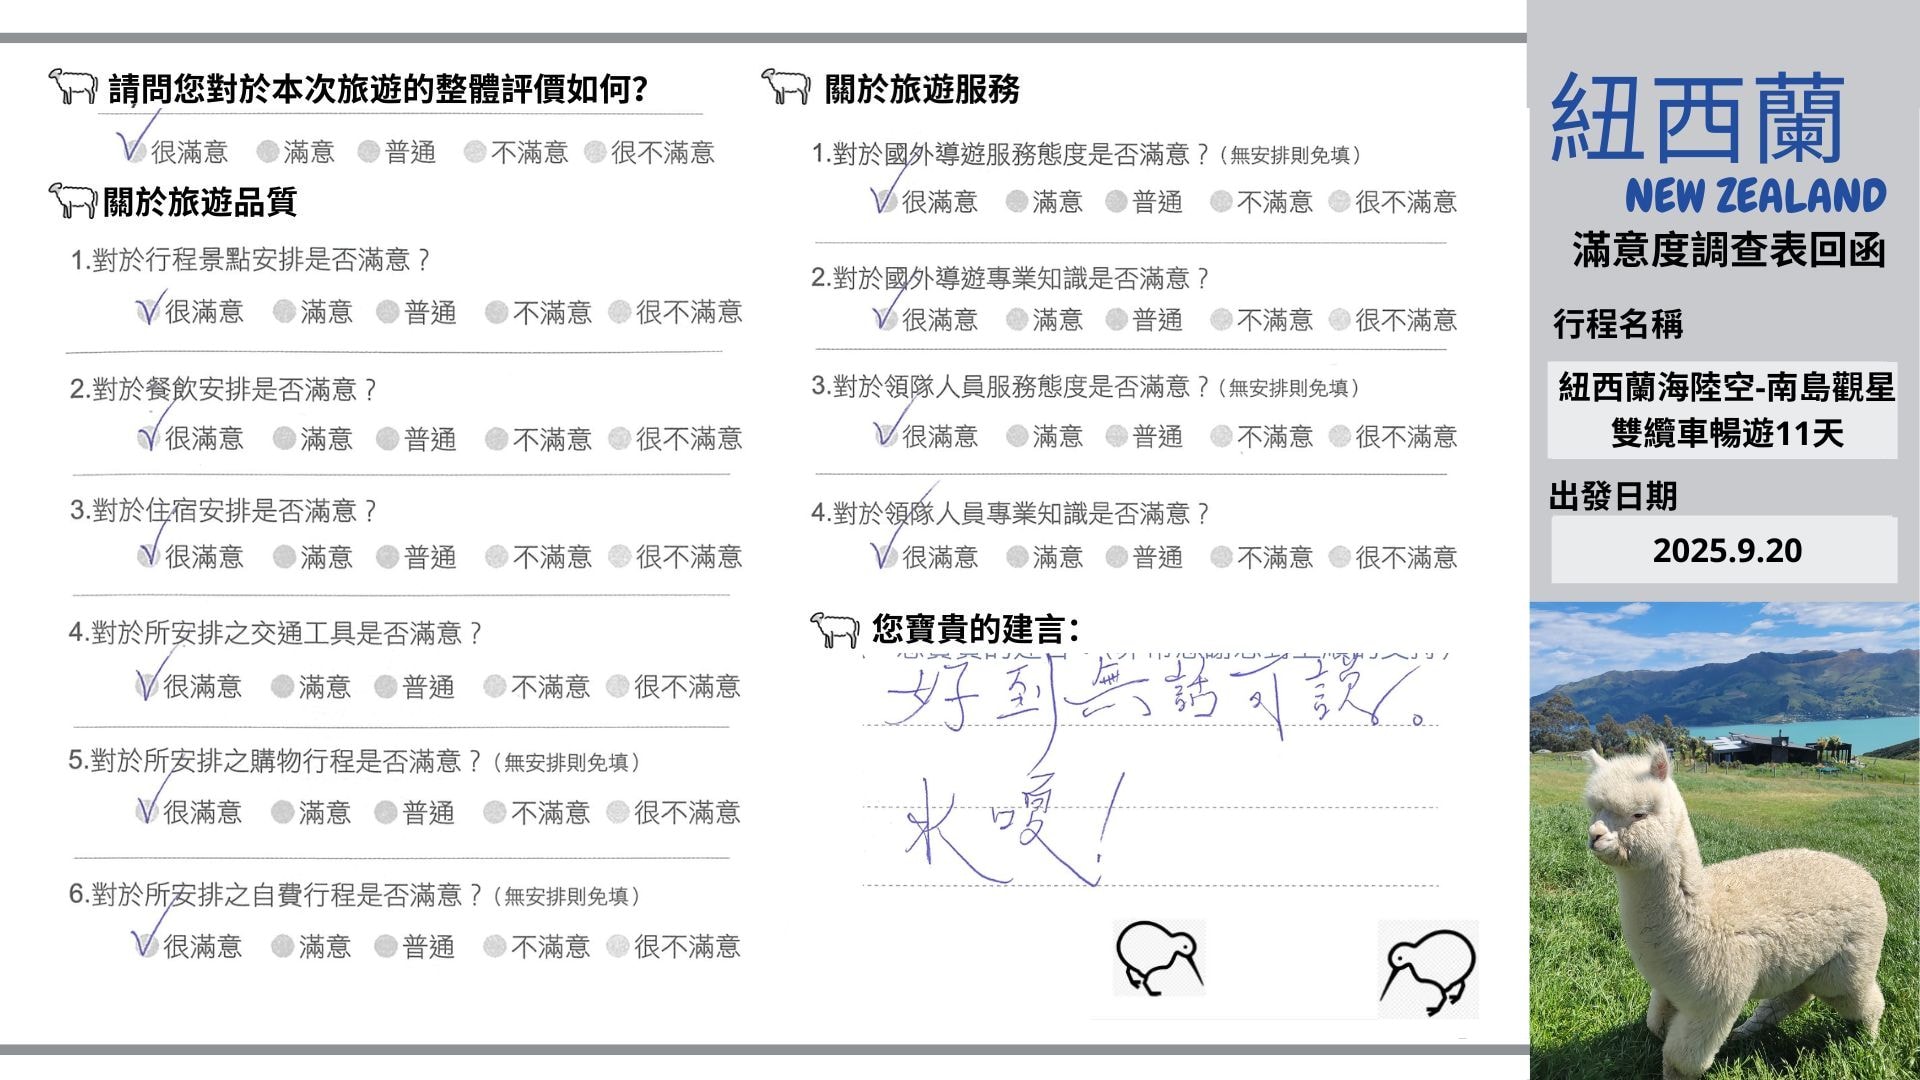 請問您對於本次旅遊的整體評價如何?
很滿意 滿意 普通 不滿意 很不滿意
關於旅遊品質
1.對於行程景點安排是否滿意？
很滿意 滿意 普通 不滿意 很不滿意
2.對於餐飲安排是否滿意？
很滿意 滿意 普通 不滿意 很不滿意
3.對於住宿安排是否滿意？
很滿意 滿意 普通 不滿意 很不滿意
4.對於所安排之交通工具是否滿意？
很滿意 滿意 普通 不滿意 很不滿意
5.對於所安排之購物行程是否滿意？（無安排則免填）
很滿意 滿意 普通 不滿意 很不滿意
6.對於所安排之自費行程是否滿意？（無安排則免填）
很滿意 滿意 普通 不滿意 很不滿意
關於旅遊服務
1.對於國外導遊服務態度是否滿意？（無安排則免填）
很滿意 滿意 普通 不滿意 很不滿意
2.對於國外導遊專業知識是否滿意？
很滿意 滿意 普通 不滿意 很不滿意
3.對於領隊人員服務態度是否滿意？（無安排則免填）
很滿意 滿意 普通 不滿意 很不滿意
4.對於領隊人員專業知識是否滿意？
很滿意 滿意 普通 不滿意 很不滿意
您寶貴的建言：
好到無話可說。
水嗄!
紐西蘭
NEW ZEALAND
滿意度調查表回函
行程名稱
紐西蘭海陸空-南島觀星
雙纜車暢遊11天
出發日期
2025.9.20